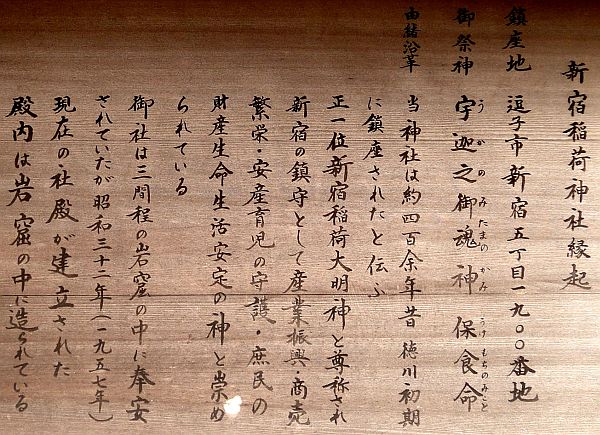 新宿稲荷神社縁起
鎮座地 逗子市新宿五丁目一九〇〇番地
御祭神 宇迦之御魂神 保食命
うかのみたまのかみ うけもちのみこと
由緒沿革 当神社は約四百余年昔 徳川初期
に鎮座されたと伝ふ
正一位新宿稲荷大明神と尊称され
新宿の鎮守として産業振興・商売
繁栄・安産育児の守護・庶民の
財産生命生活安定の神と崇め
られている
御社は三間程の岩窟の中に奉安
されていたが昭和三十二年(一九五七年)
現在の社殿が建立された
殿内は岩窟の中に造られている